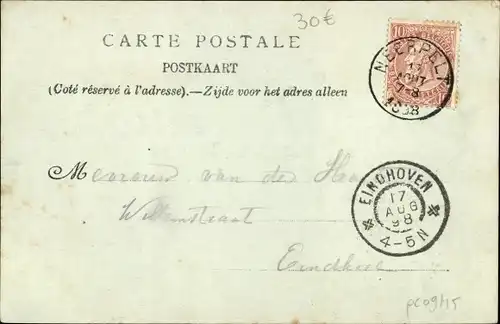 30€
CARTE POSTALE
POSTKAART
(Coté réservé à l'adresse).—Zijde voor het adres alleen
10
NEERPELT
17
AOUT
7-8
1898
Mevrouw van der
Willemstraat
Eindhoven
EINDHOVEN
17
AUG
98
4-5N
pc09415